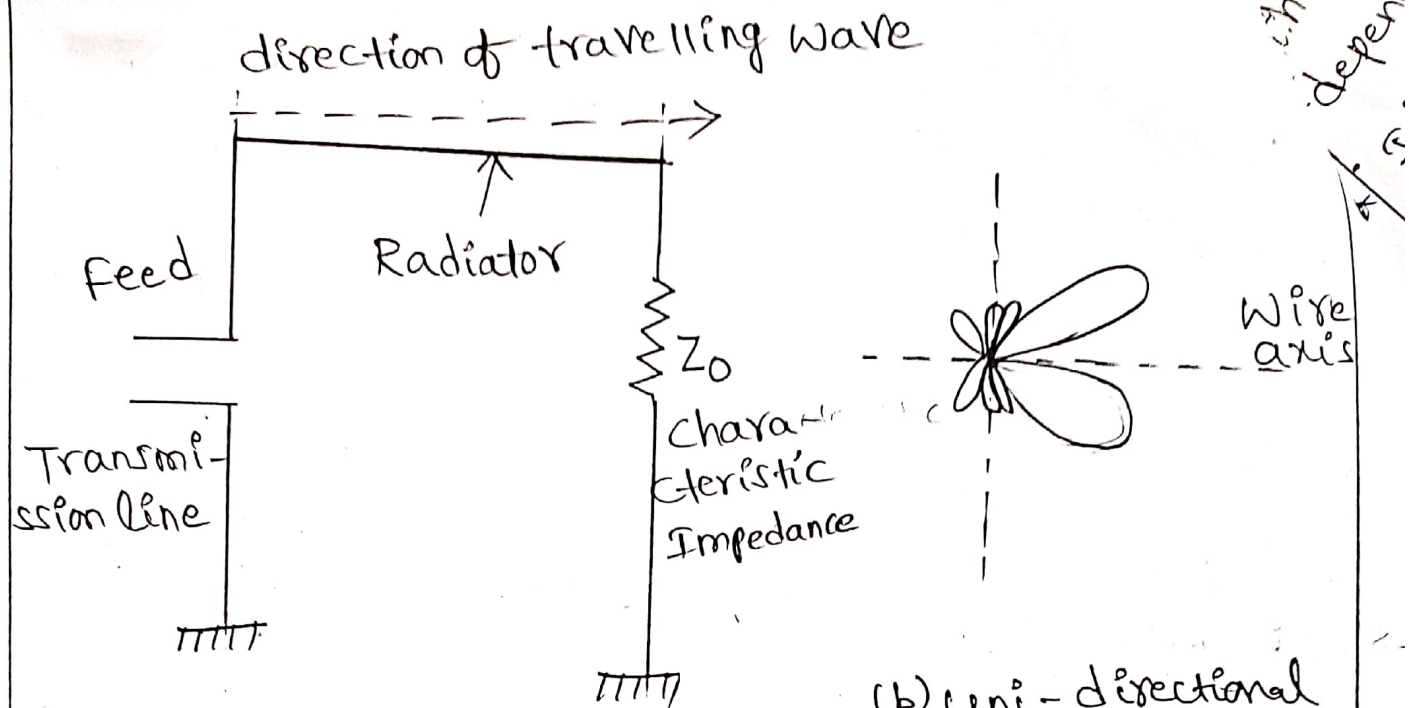 direction of travelling wave
Feed
Radiator
Transmi-
ssion line
Z0
Chara
cteristic
Impedance
Wire
axis
depen
(b) uni-directional